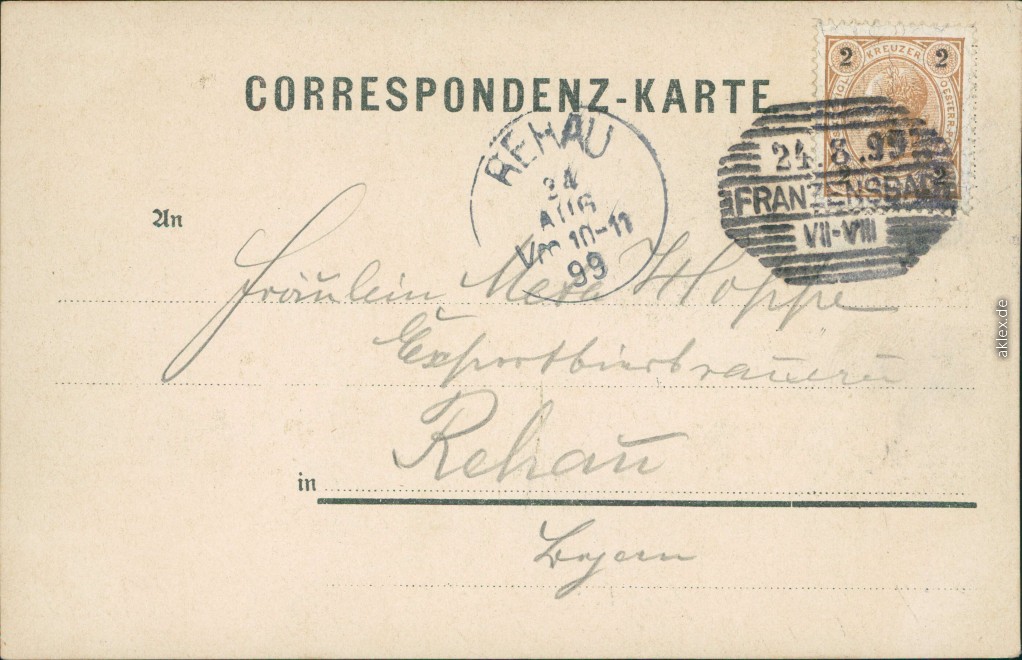 CORRESPONDENZ-KARTE
2 KREUZER 2
2 2
24.8.99
FRANZENSBAD
VII-VIII
REHAU
24
AUG
Vm 10-11
99
An
Fräulein Hoppe
Exportbierbrauerei
in Rehau
Bayern
aklex.de